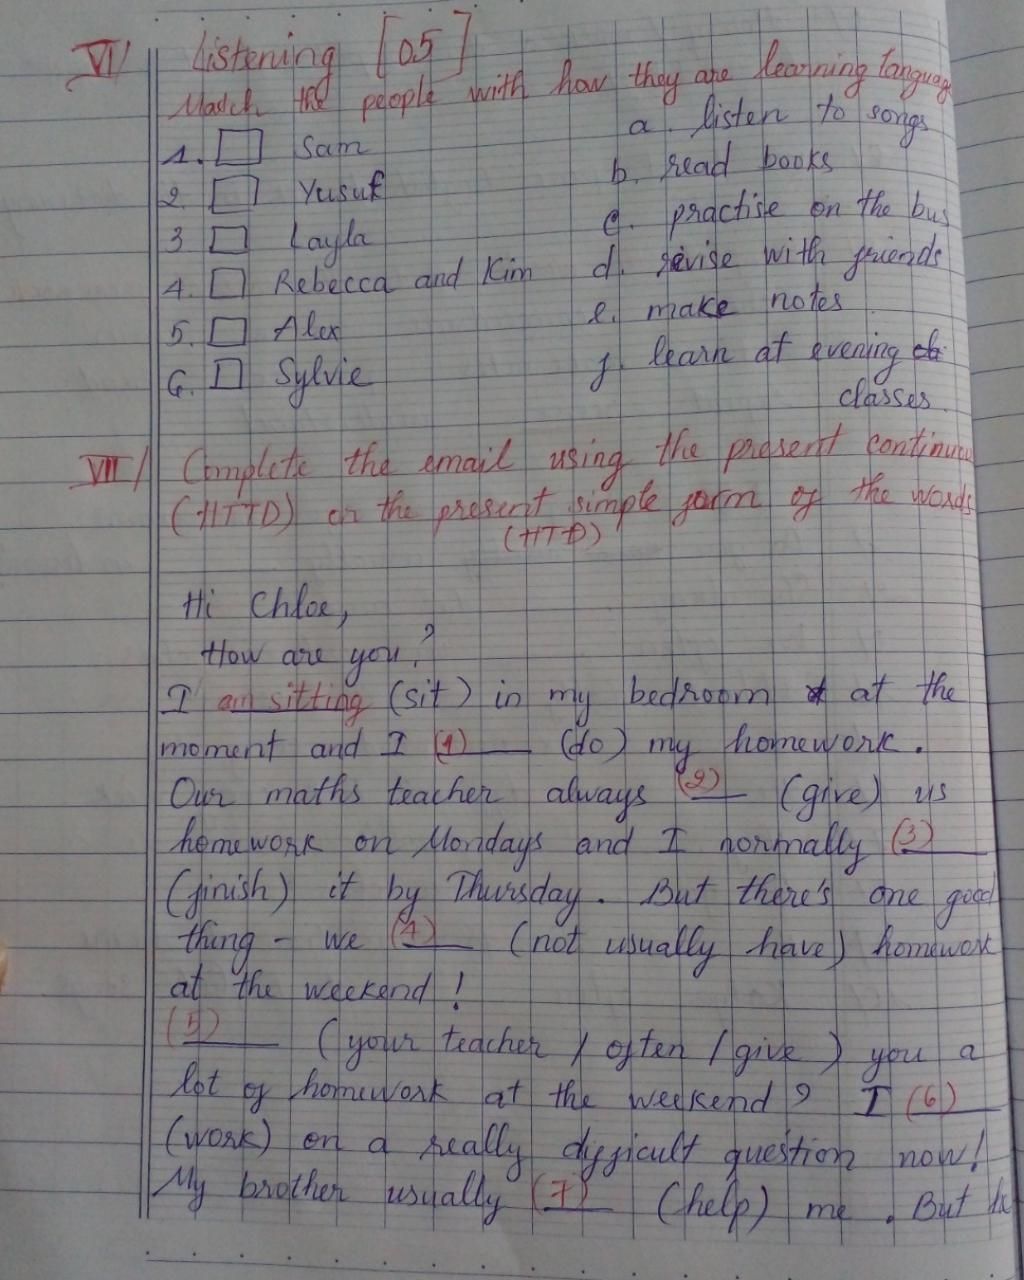 VI/ Listening [05]
Match the people with how they are learning language
1. Sam a. listen to songs
2. Yusuf b. read books
3 Layla c. practise on the bus
4. Rebecca and Kim d. revise with friends
5. Alex e. make notes
6. Sylvie f. learn at evening
classes.
VII/ Complete the email using the present continuous
(HTTD) or the present simple form of the words
(HTĐ)
Hi Chloe,
How are you?
I am sitting (sit) in my bedroom at the
moment and I (1)___ (do) my homework.
Our maths teacher always (2)___ (give) us
homework on Mondays and I normally (3)___
(finish) it by Thursday. But there's one good
thing - we (4)___ (not usually have) homework
at the weekend!
(5)___ (your teacher / often / give) you a
lot of homework at the weekend? I (6)___
(work) on a really difficult question now!
My brother usually (7)___ (help) me. But he